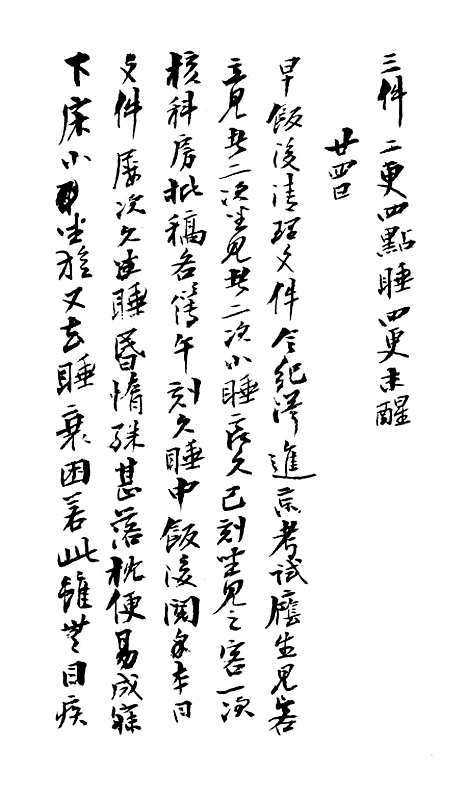 三件二更四點睡四更未醒
廿四日
早飯後清理文件令紀澤進京考試廕生見客
立見者二次坐見者二次小睡良久巳刻坐見之客一次
核科房批稿各簿午刻久睡中飯後閱本日
文件屢次久睡昏惰殊甚落枕便易成寐
下床小坐旋又去睡衰困若此雖無目疾